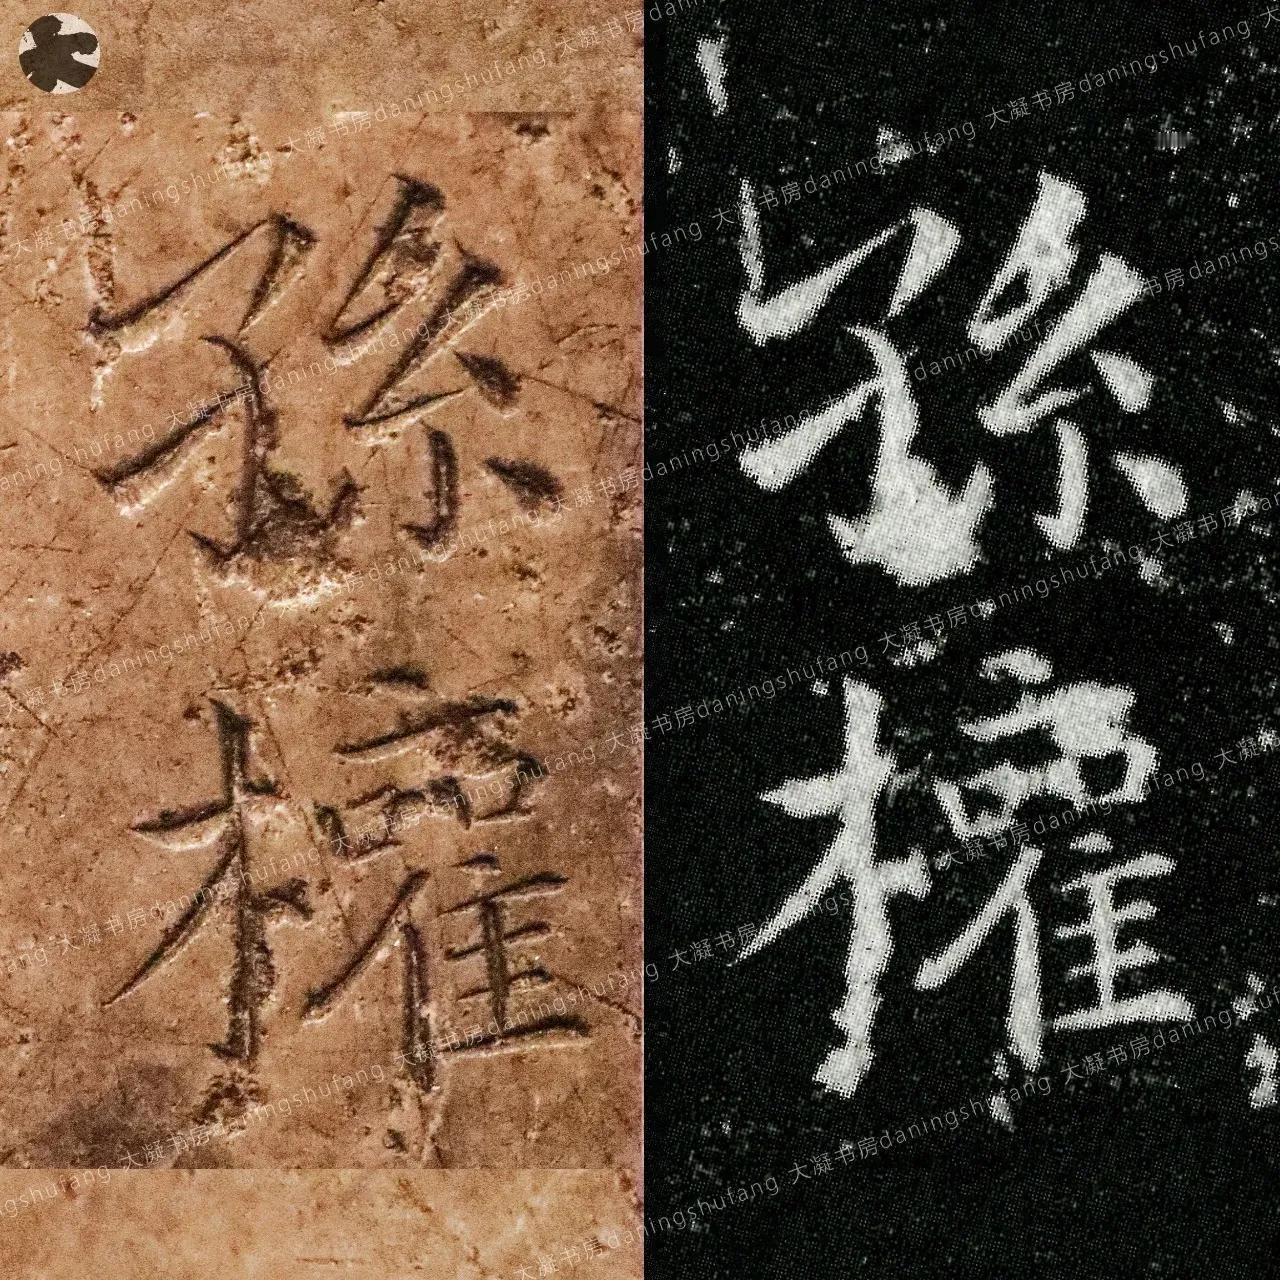 孫權
孫權
大凝书房daningshufang